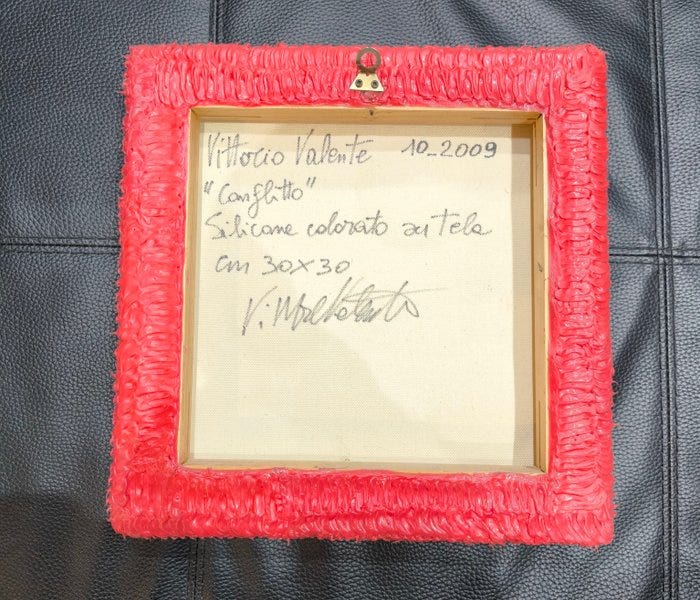 Vittorio Valente 10_2009
"Conflitto"
Silicone colorato su tela
cm 30x30